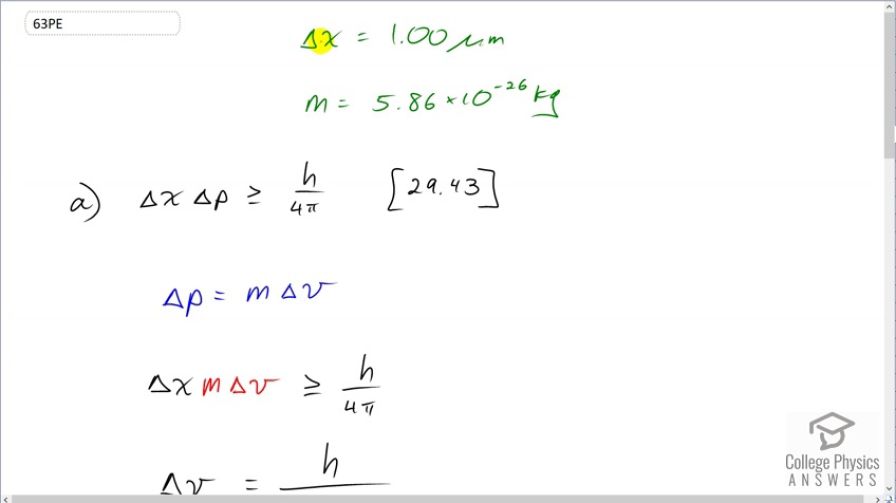 63PE
Δx = 1.00 μm
m = 5.86 × 10⁻²⁶ kg
a) Δx Δp ≥ h/4π [29.43]
Δp = m Δv
Δx m Δv ≥ h/4π
Δv = h
College Physics
ANSWERS